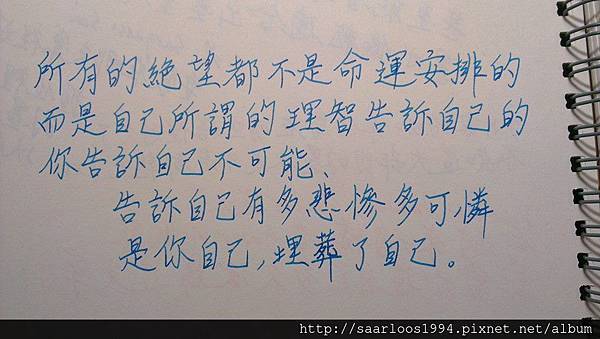 所有的絕望都不是命運安排的
而是自己所謂的理智告訴自己的
你告訴自己不可能、
告訴自己有多悲慘多可憐
是你自己,埋葬了自己。
http://saarloos1994.pixnet.net/album